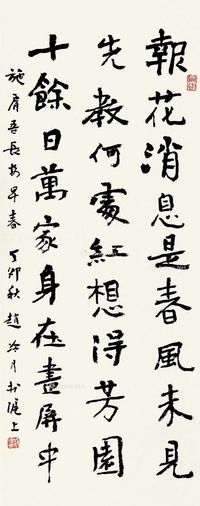 報花消息是春風未見
先教何處紅想得芳園
十餘日萬家身在畫屏中
施肩吾長安早春 丁卯秋趙冷月书滬上